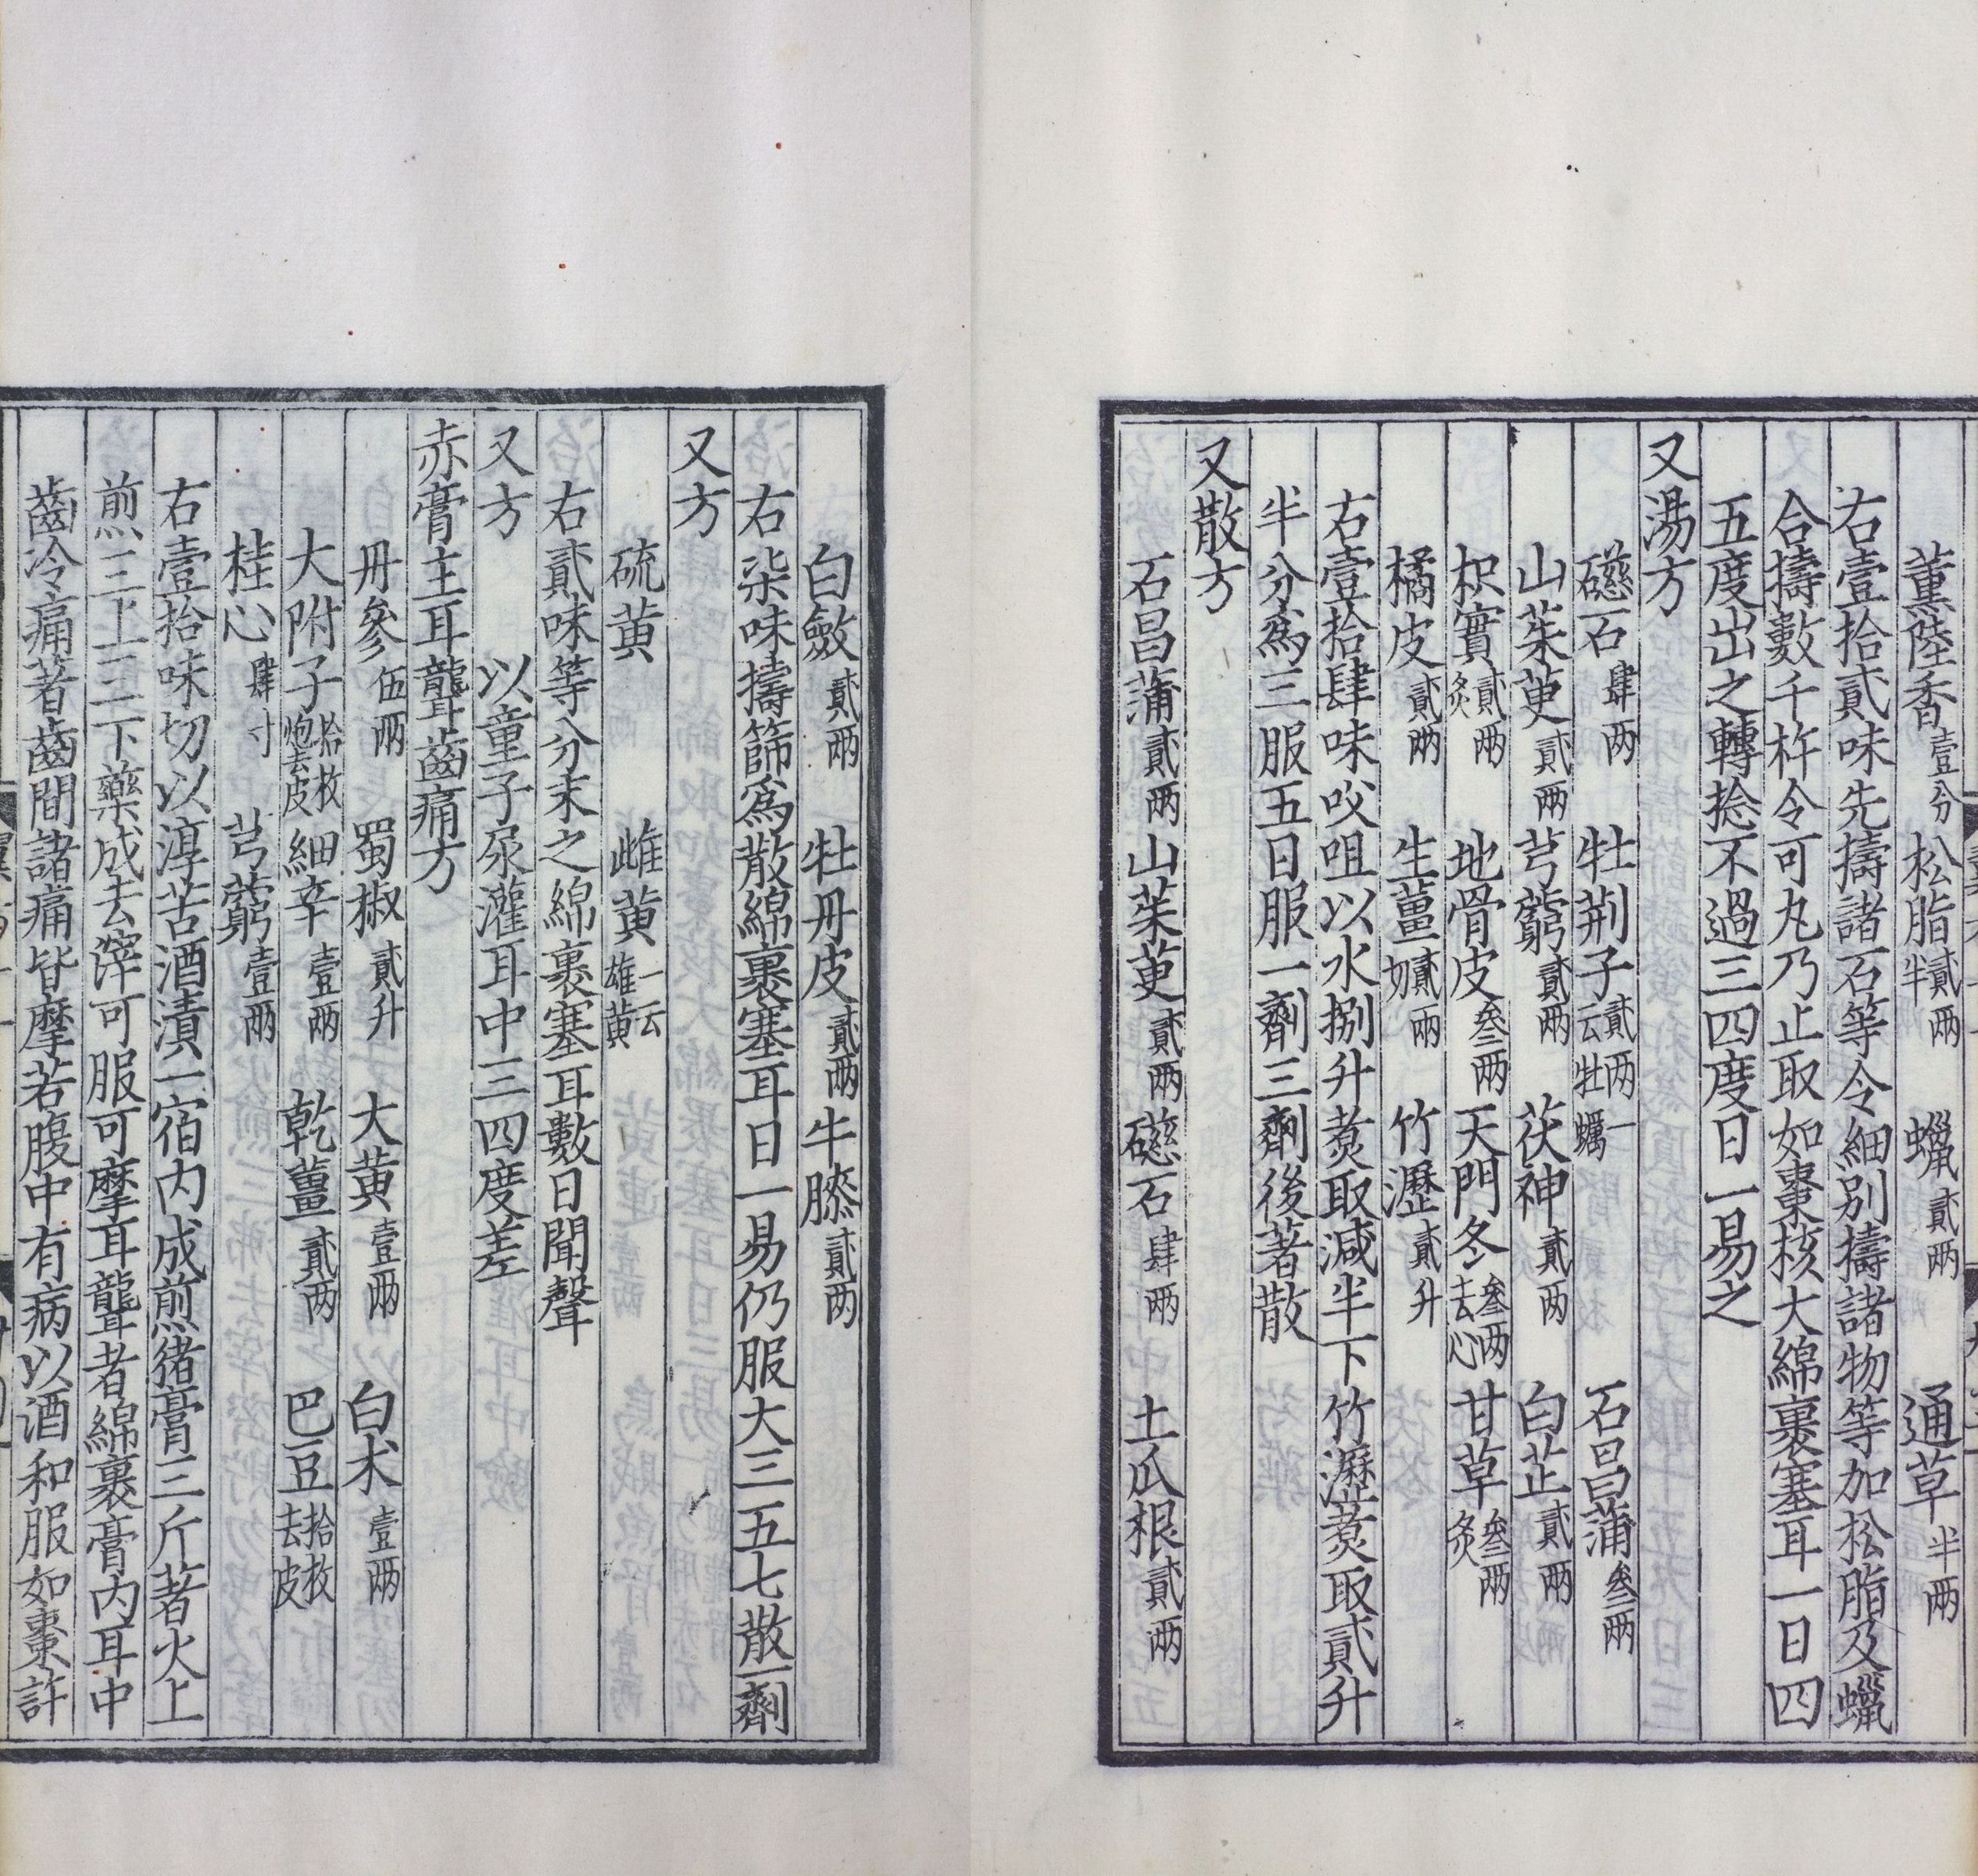 薰陸香壹分 松脂貳兩半 蠟貳兩 通草半兩
右壹拾貳味先擣諸石等令細别擣諸物等加松脂及蠟
合擣數千杵令可丸乃止取如棗核大綿裹塞耳一日四
五度出之轉捻不過三四度日一易之
又湯方
礠石肆两 牡荆子貳两一云牡蠣 石昌蒲叄兩
山茱萸貳两 芎藭貳两 茯神貳两 白芷貳两
枳實貳兩炙 地骨皮叄两 天門冬叄两去心 甘草叄兩炙
橘皮貳兩 生薑貳兩切 竹瀝貳升
右壹拾肆味㕮咀以水捌升煑取減半下竹瀝煑取貳升
半分爲三服五日服一劑三劑後著散
又散方
石昌蒲貳兩 山茱萸貳兩 礠石肆兩 土瓜根貳兩
白斂貳兩 牡丹皮貳兩 牛膝貳两
右柒味擣篩爲散綿裹塞耳日一易仍服大三五七散一劑
又方
硫黄 雌黄一云雄黄
右貳味等分末之綿裹塞耳數日聞聲
又方 以童子尿灌耳中三四度差
赤膏主耳聾齒痛方
丹參伍兩 蜀椒貳升 大黄壹兩 白术壹兩
大附子拾枚炮去皮 細辛壹兩 乾薑貳两 巴豆拾枚去皮
桂心肆寸 芎藭壹兩
右壹拾味切以淳苦酒漬一宿内成煎猪膏三斤著火上
煎三上三下藥成去滓可服可摩耳聾者綿裹膏内耳中
齒冷痛著齒間諸痛皆摩若腹中有病以酒和服如棗許